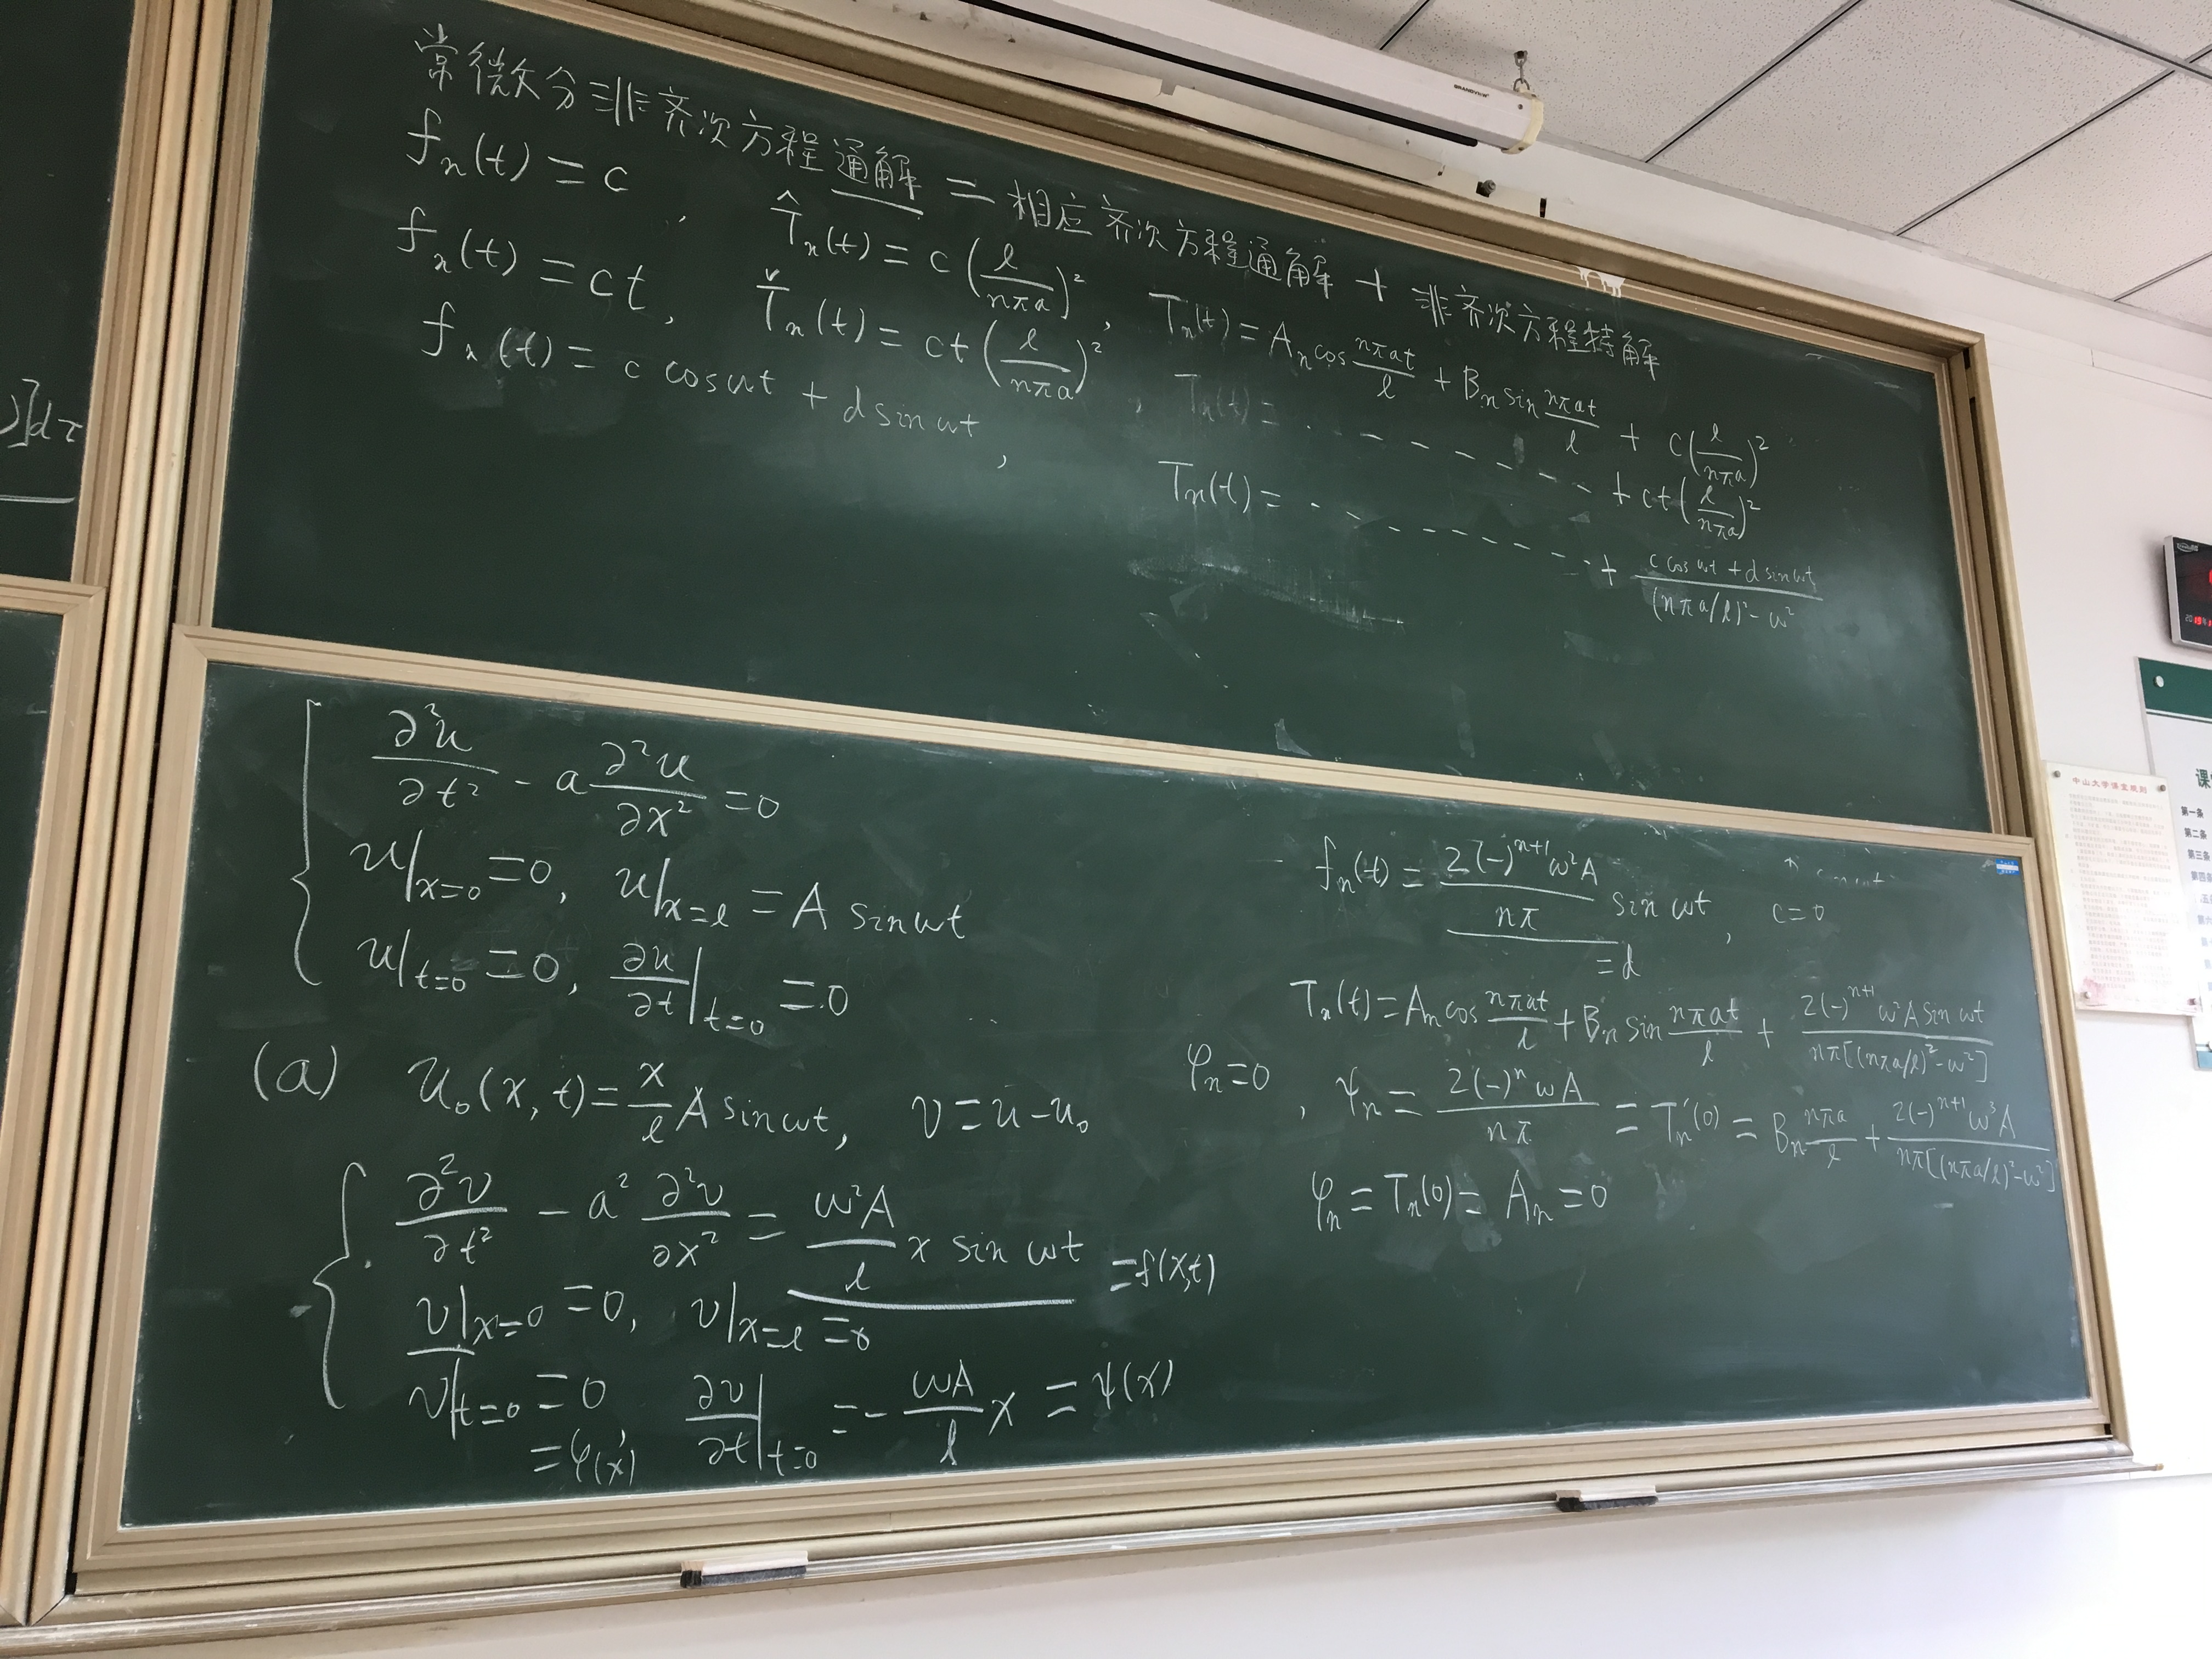 常微分非齐次方程通解 = 相应齐次方程通解 + 非齐次方程特解
fₙ(t) = c, T̂ₙ(t) = c(l/nπa)², Tₙ(t) = Aₙcos nπat/l + Bₙ sin nπat/l + c(l/nπa)²
fₙ(t) = ct, T̆ₙ(t) = ct(l/nπa)², Tₙ(t) = - - - - - - - - + ct(l/nπa)²
fₙ(t) = c cosωt + d sinωt, Tₙ(t) = - - - - - - - - + (c cosωt + d sinωt)/((nπa/l)² - ω²)
)]dτ
∂²u/∂t² - a ∂²u/∂x² = 0
u|x=0 = 0, u|x=l = A sinωt
u|t=0 = 0, ∂u/∂t|t=0 = 0
(a) u₀(x,t) = x/l A sinωt, v = u - u₀
∂²v/∂t² - a² ∂²v/∂x² = ω²A/l x sin ωt = f(x,t)
v|x=0 = 0, v|x=l = 0
v|t=0 = 0 = φ(x), ∂v/∂t|t=0 = - ωA/l x = ψ(x)
fₙ(t) = 2(-)ⁿ⁺¹ω²A/nπ sin ωt, c=0
=d
Tₙ(t) = Aₙ cos nπat/l + Bₙ sin nπat/l + 2(-)ⁿ⁺¹ω²A sin ωt/nπ[(nπa/l)²-ω²]
φₙ=0, ψₙ = 2(-)ⁿωA/nπ = Tₙ'(0) = Bₙ nπa/l + 2(-)ⁿ⁺¹ω³A/nπ[(nπa/l)²-ω²]
φₙ = Tₙ(0) = Aₙ = 0
GRANDVIEW
中山大学课堂规则
课
第一条
第二条
第三条
第四条